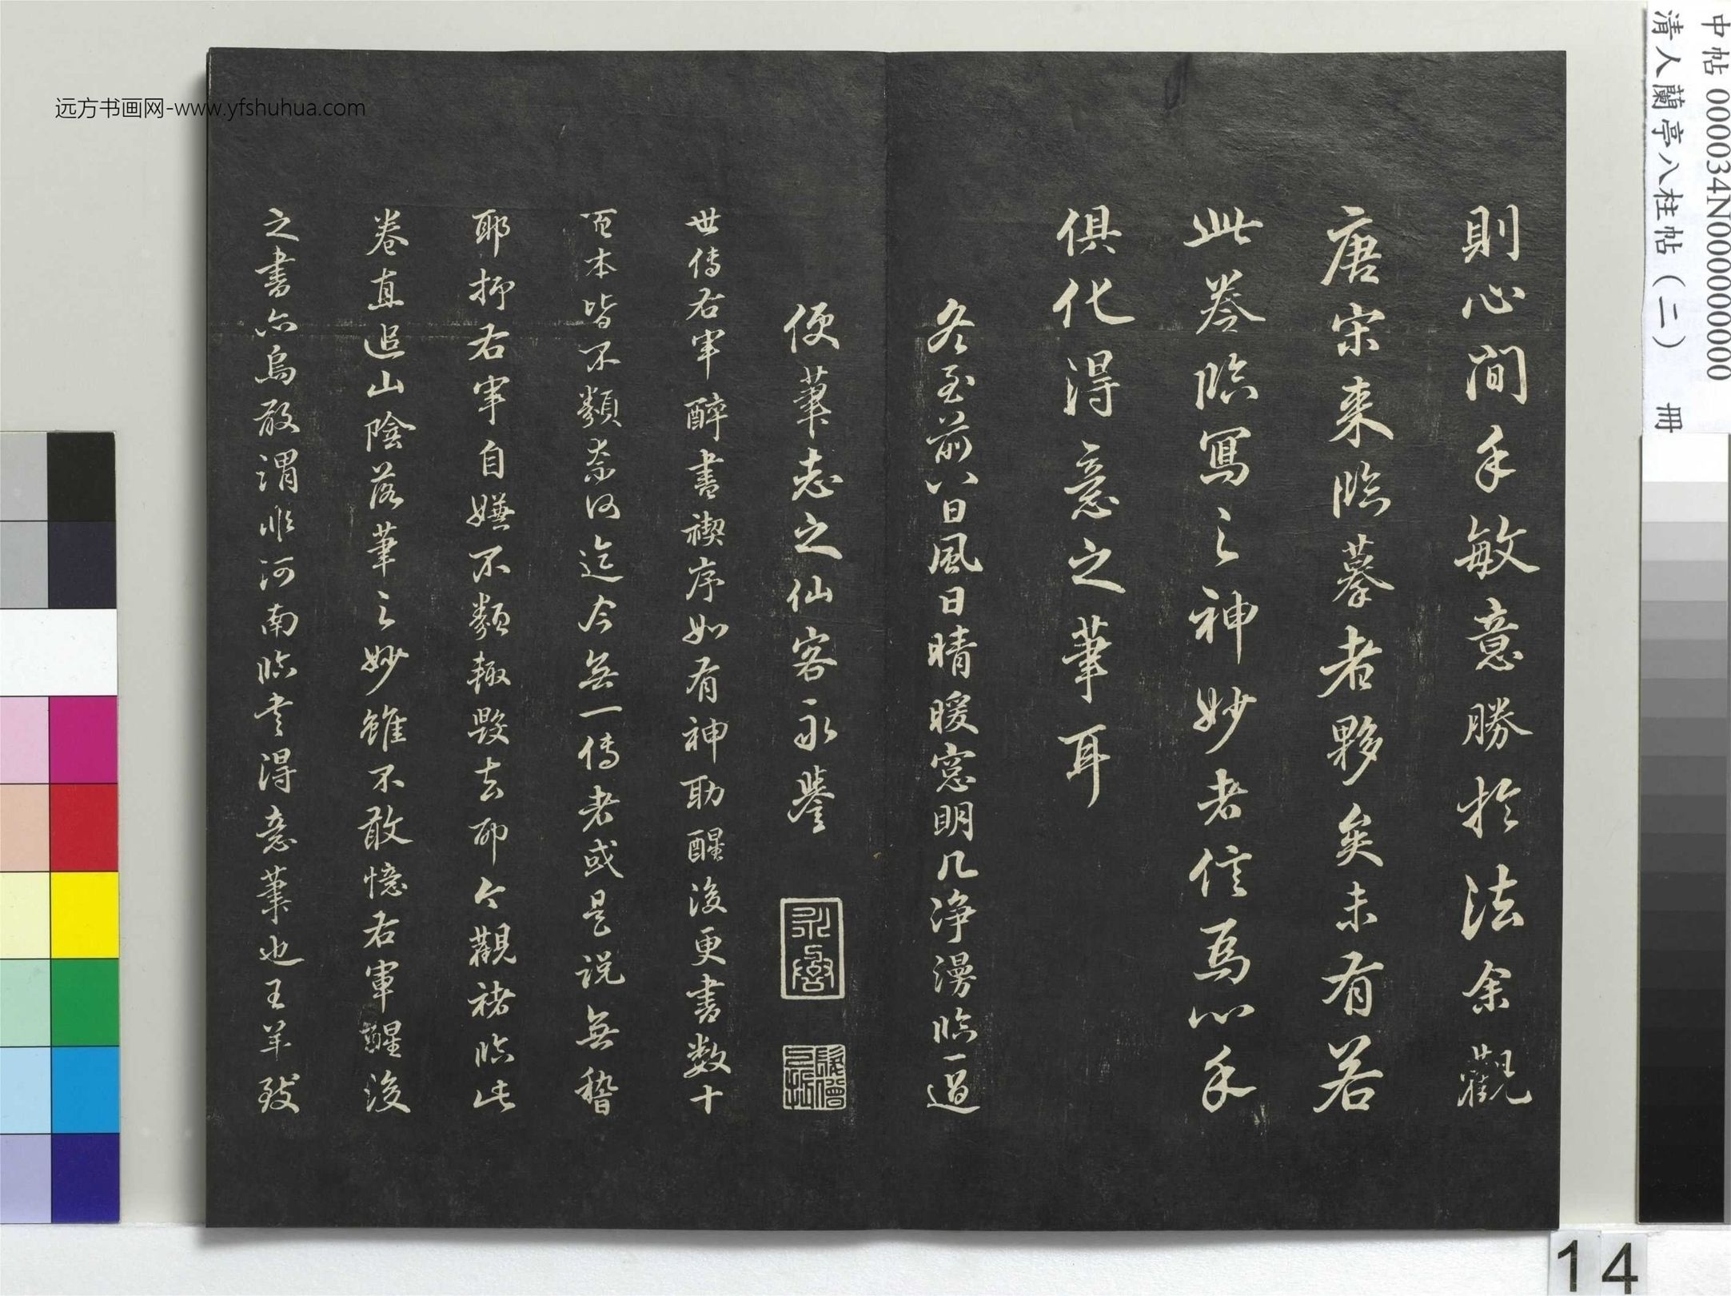 則心閒手敏意勝於法余觀
唐宋來臨摹者夥矣未有若
此卷臨寫之神妙者信為心手
俱化得意之筆耳
冬至前八日風日晴暖窓明几净漫臨一過
便筆志之仙客永譽
永譽
世傳右軍醉書禊序如有神助醒後更書數十
百本皆不類奈何迄今無一傳者或是說無稽
耶抑右軍自嫌不類輒毀去耶今觀褚臨此
卷直追山陰落筆之妙雖不敢憶右軍醒後
之書亦烏敢謂非河南臨書得意筆也王羊致
中帖 000034N000000000
清人蘭亭八柱帖(二) 冊
远方书画网-www.yfshuhua.com
14